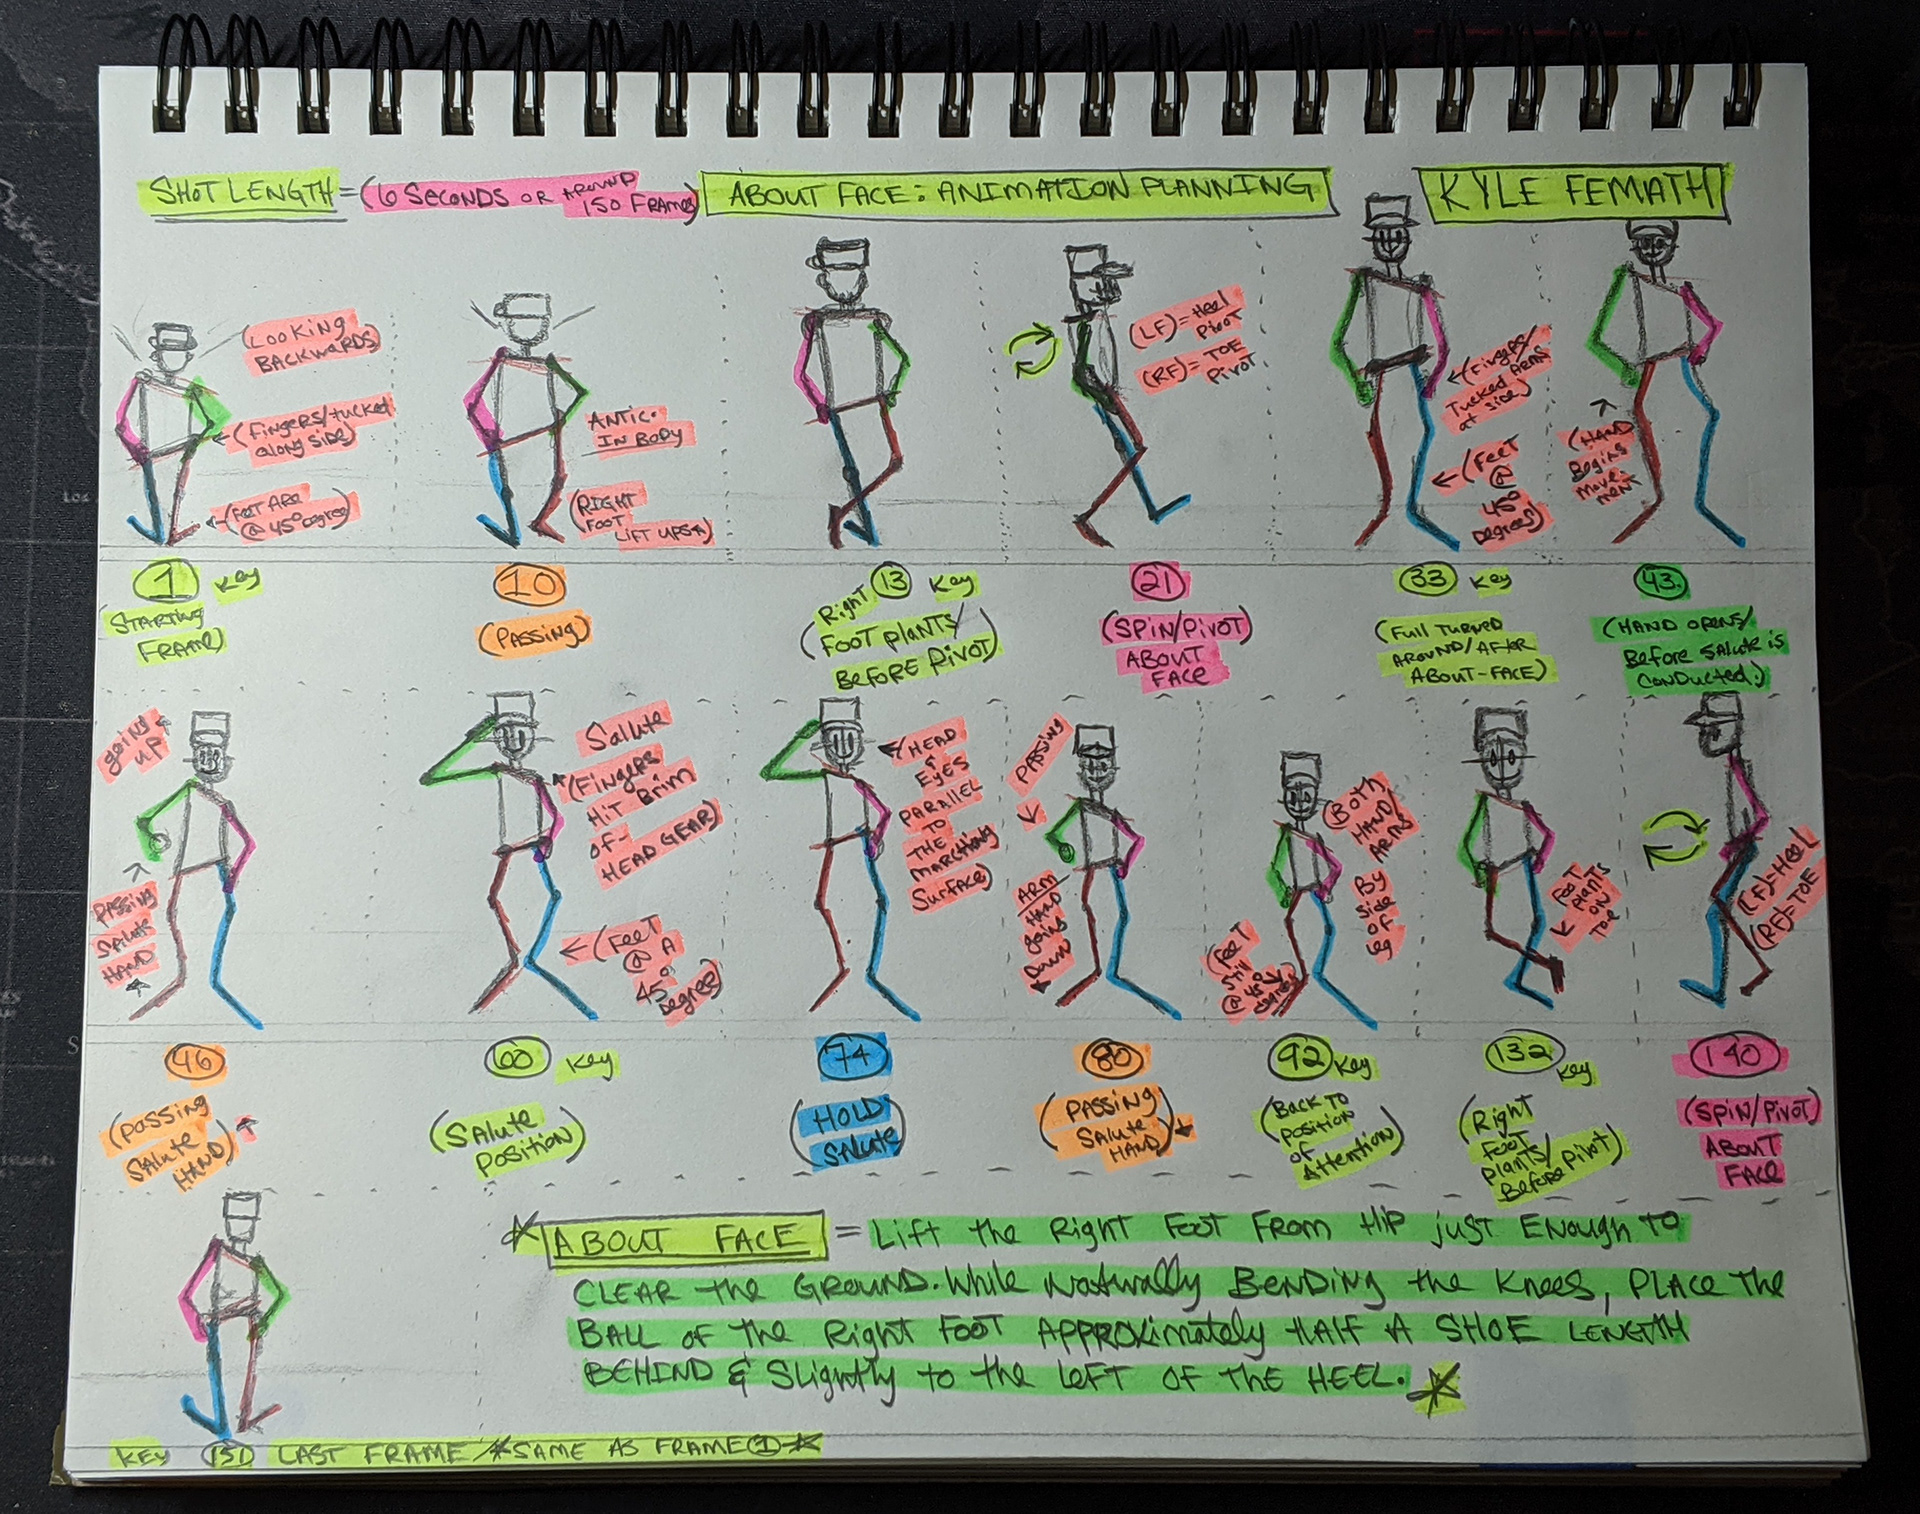 SHOT LENGTH = (6 SECONDS OR AROUND
150 FRAMES)
ABOUT FACE: ANIMATION PLANNING
KYLE FEMATH
(LOOKING
BACKWARDS)
(FINGERS/tucked
along side)
(FEET ARE
@ 45° degree)
ANTIC.
IN BODY
(RIGHT
FOOT
LIFT UPS↑)
(LF) = Heel
Pivot
(RF) = TOE
Pivot
(Fingers/
Tucked ARMS
at side)
(Feet
@
45°
Degrees)
(HAND
Begins
move-
ment
1 Key
(STARTING
FRAME)
10
(PASSING)
13 Key
(Right
FOOT PLANTS/
BEFORE PIVOT)
21
(SPIN/PIVOT)
ABOUT
FACE
33 Key
(Full TURNED
AROUND/AFTER
ABOUT-FACE)
43.
(HAND OPENS/
Before SALUTE is
CONDUCTED.)
going
UP
PASSING
SALUTE
HAND
Salute
(FINGERS
HIT Brim
OF
HEAD GEAR)
(FEET
@ A
45°
Degree)
(HEAD
&
EYES
PARALLEL
TO
THE
MARCHING
Surface)
PASSING
ARM
HAND
going
Down
(Both
HAND/
ARMS
By
side
of
leg
(Feet
Still
@ 45°
degree)
FOOT
PLANTS
ON
TOE
(LF)=HEEL
(RF)=TOE
46
(PASSING
SALUTE
HAND)
60 Key
(SALUTE
POSITION)
74
(HOLD
SALUTE)
80
(PASSING
SALUTE
HAND)
92 Key
(BACK TO
POSITION
OF
Attention)
132 Key
(Right
FOOT
PLANTS/
Before Pivot)
140
(SPIN/PIVOT)
ABOUT
FACE
ABOUT FACE = Lift the Right Foot From Hip just Enough to
CLEAR the GROUND. While Naturally BENDING the Knees, PLACE The
BALL of the Right FOOT APPROXimately HALF A SHOE LENGTH
BEHIND & Slightly to the LEFT OF THE HEEL.
KEY 151 LAST FRAME/*SAME AS FRAME 1*